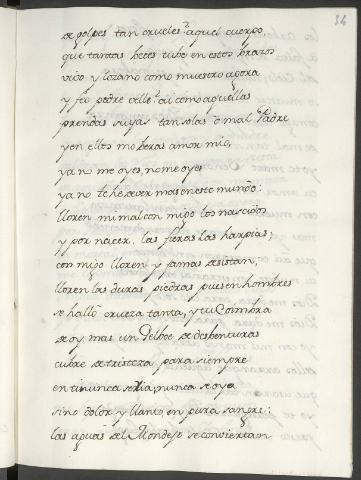 54
de golpes tan crueles? aquel cuerpo
que tantas beces tube en estos brazos
vivo y lozano como muestro agora
y frio podre belle? ai como aquellas
prendas suyas tan solas ô mal Padre
y en ellos me beras amor mio,
ya no me oyes, no me oyes
ya no te he de ver mas en este mundo:
lloren mi mal con migo los nascidos
y por nacer, las fieras las harpias;
con migo lloren y jamas desistan,
lloren las duras piedras pues en hombres
se halló crueza tanta, y tu Coimbra
de oy mas un Gelboe de desbenturas
cubre de tristeza para siempre
en ti nunca se ria, nunca se oya
sino dolor y llanto, en pura sangre:
las aguas del Mondego se conviertan